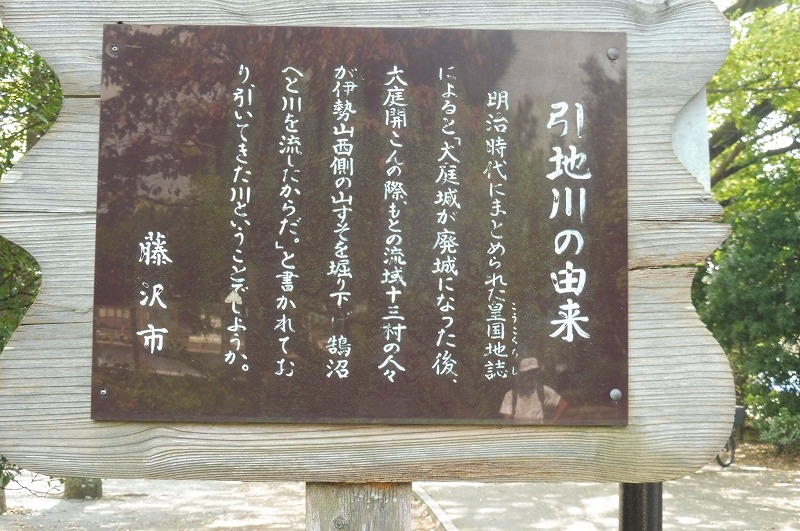 引地川の由来
明治時代にまとめられた皇国地誌
こうこくちし
によると「大庭城が廃城になった後、
大庭開こんの際、もとの流域十三村の人々
が伊勢山西側の山すそを堀り下げ鵠沼
へと川を流したからだ。」と書かれてお
り、引いてきた川ということでしょうか。
藤沢市